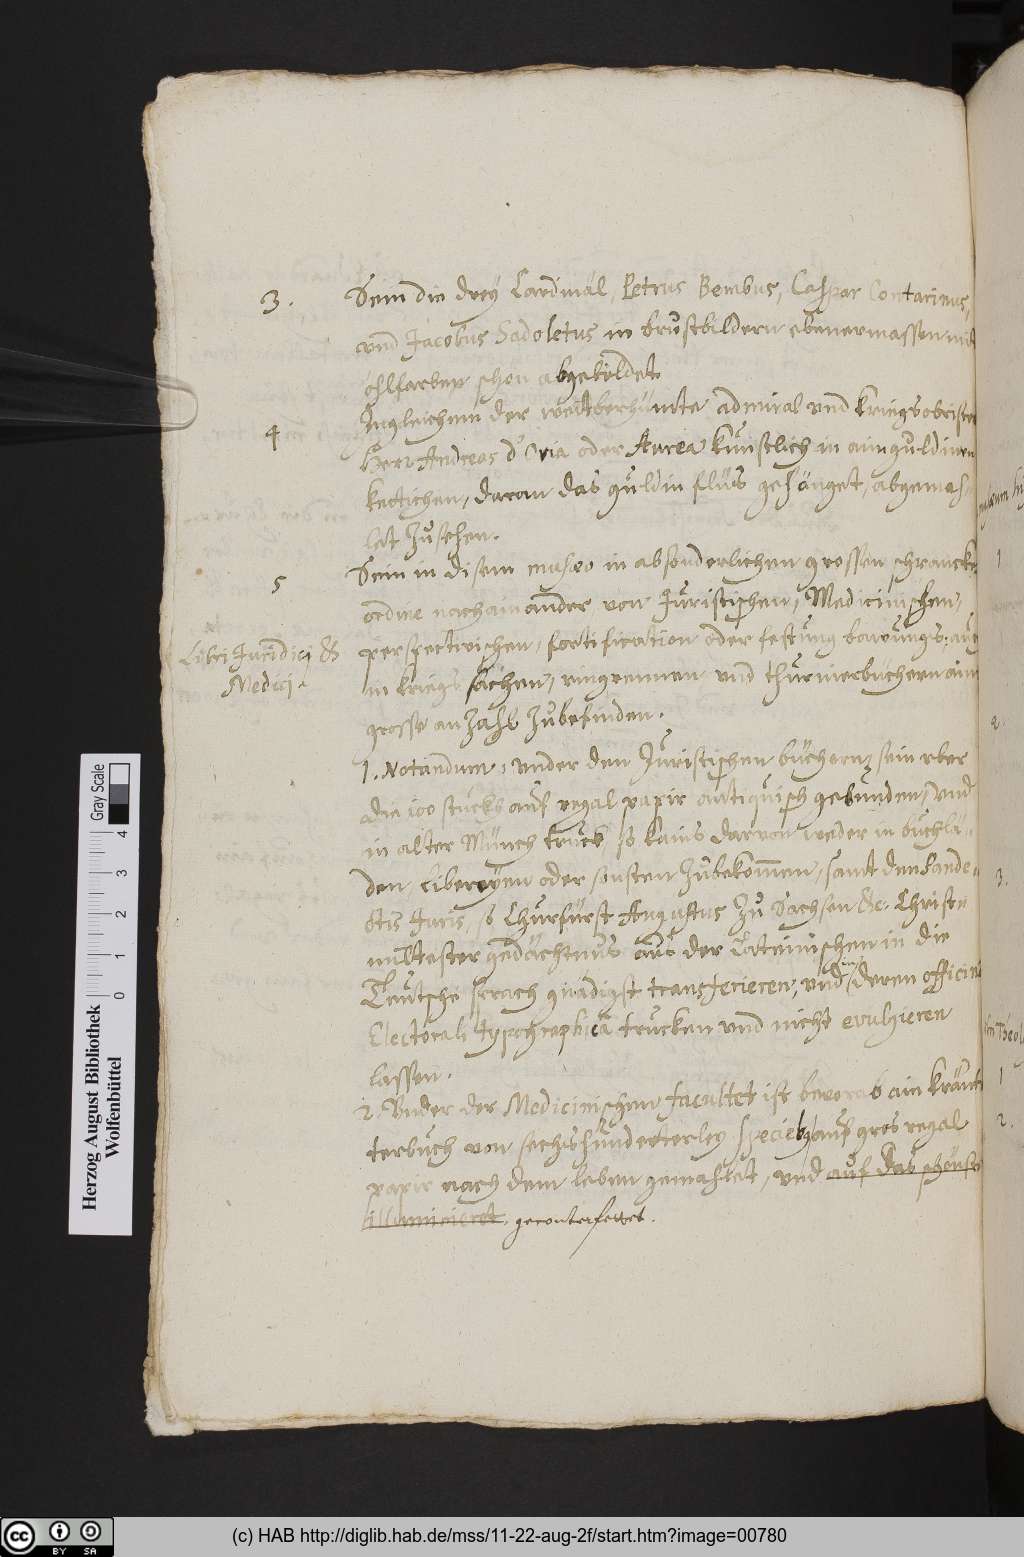 3. Sein die drey Cardinäl, Petrus Bembus, Caspar Contarinus,
vnd Jacobus Sadoletus in brustbildern ebenermassen mit
öhlfarben schon abgebildet
4 Ingleichem der weitberhümte admiral vnd kriegsobrister
Herr Andreas d'Oria oder Aurea künstlich in aim guldinen
kettichen, daran das guldin flüs gehänget, abgemah-
let zu sehen.
5 Sein in disem musæo in absonderlichen grossen schrancken
ordine nachainander von Juristischen, Medicinischen,
Libri Juridici &
Medici.
perspectivischen, fortification oder festung bawungs: auch
in kriegs sachen, ringrennen vnd thurnierbüchern ain
grosse anzahl zubefinden.
1. Notandum, vnder den Juristischen büchern, sein vber
die 100 stuckh auf regal papir antiquisch gebunden, vnd
in alter Münch truck so kains darvon weder in buchlä-
den, libereyen oder sonsten zubekommen, samt den Pande-
ctis Juris, so Churfürst Augustus zu Sachsen &c. Christ-
miltester gedächtnus aus der Lateinischen in die
Teutsche sprach gnädigst transferieren, vnd in deren officina
Electorali typographica trucken vnd nicht evulgieren
lassen.
2. Vnder der Medicinischen facultet ist bevorab ain kräut-
terbuch von sechshunderterley speciebus auf gros regal
papir nach dem leben gemahlet, vnd auf das schönste
illuminieret. geconterfettet.
1
2.
3.
1
2.
Herzog August Bibliothek
Wolfenbüttel
Gray Scale
0 1 2 3 4
cc BY SA
(c) HAB http://diglib.hab.de/mss/11-22-aug-2f/start.htm?image=00780